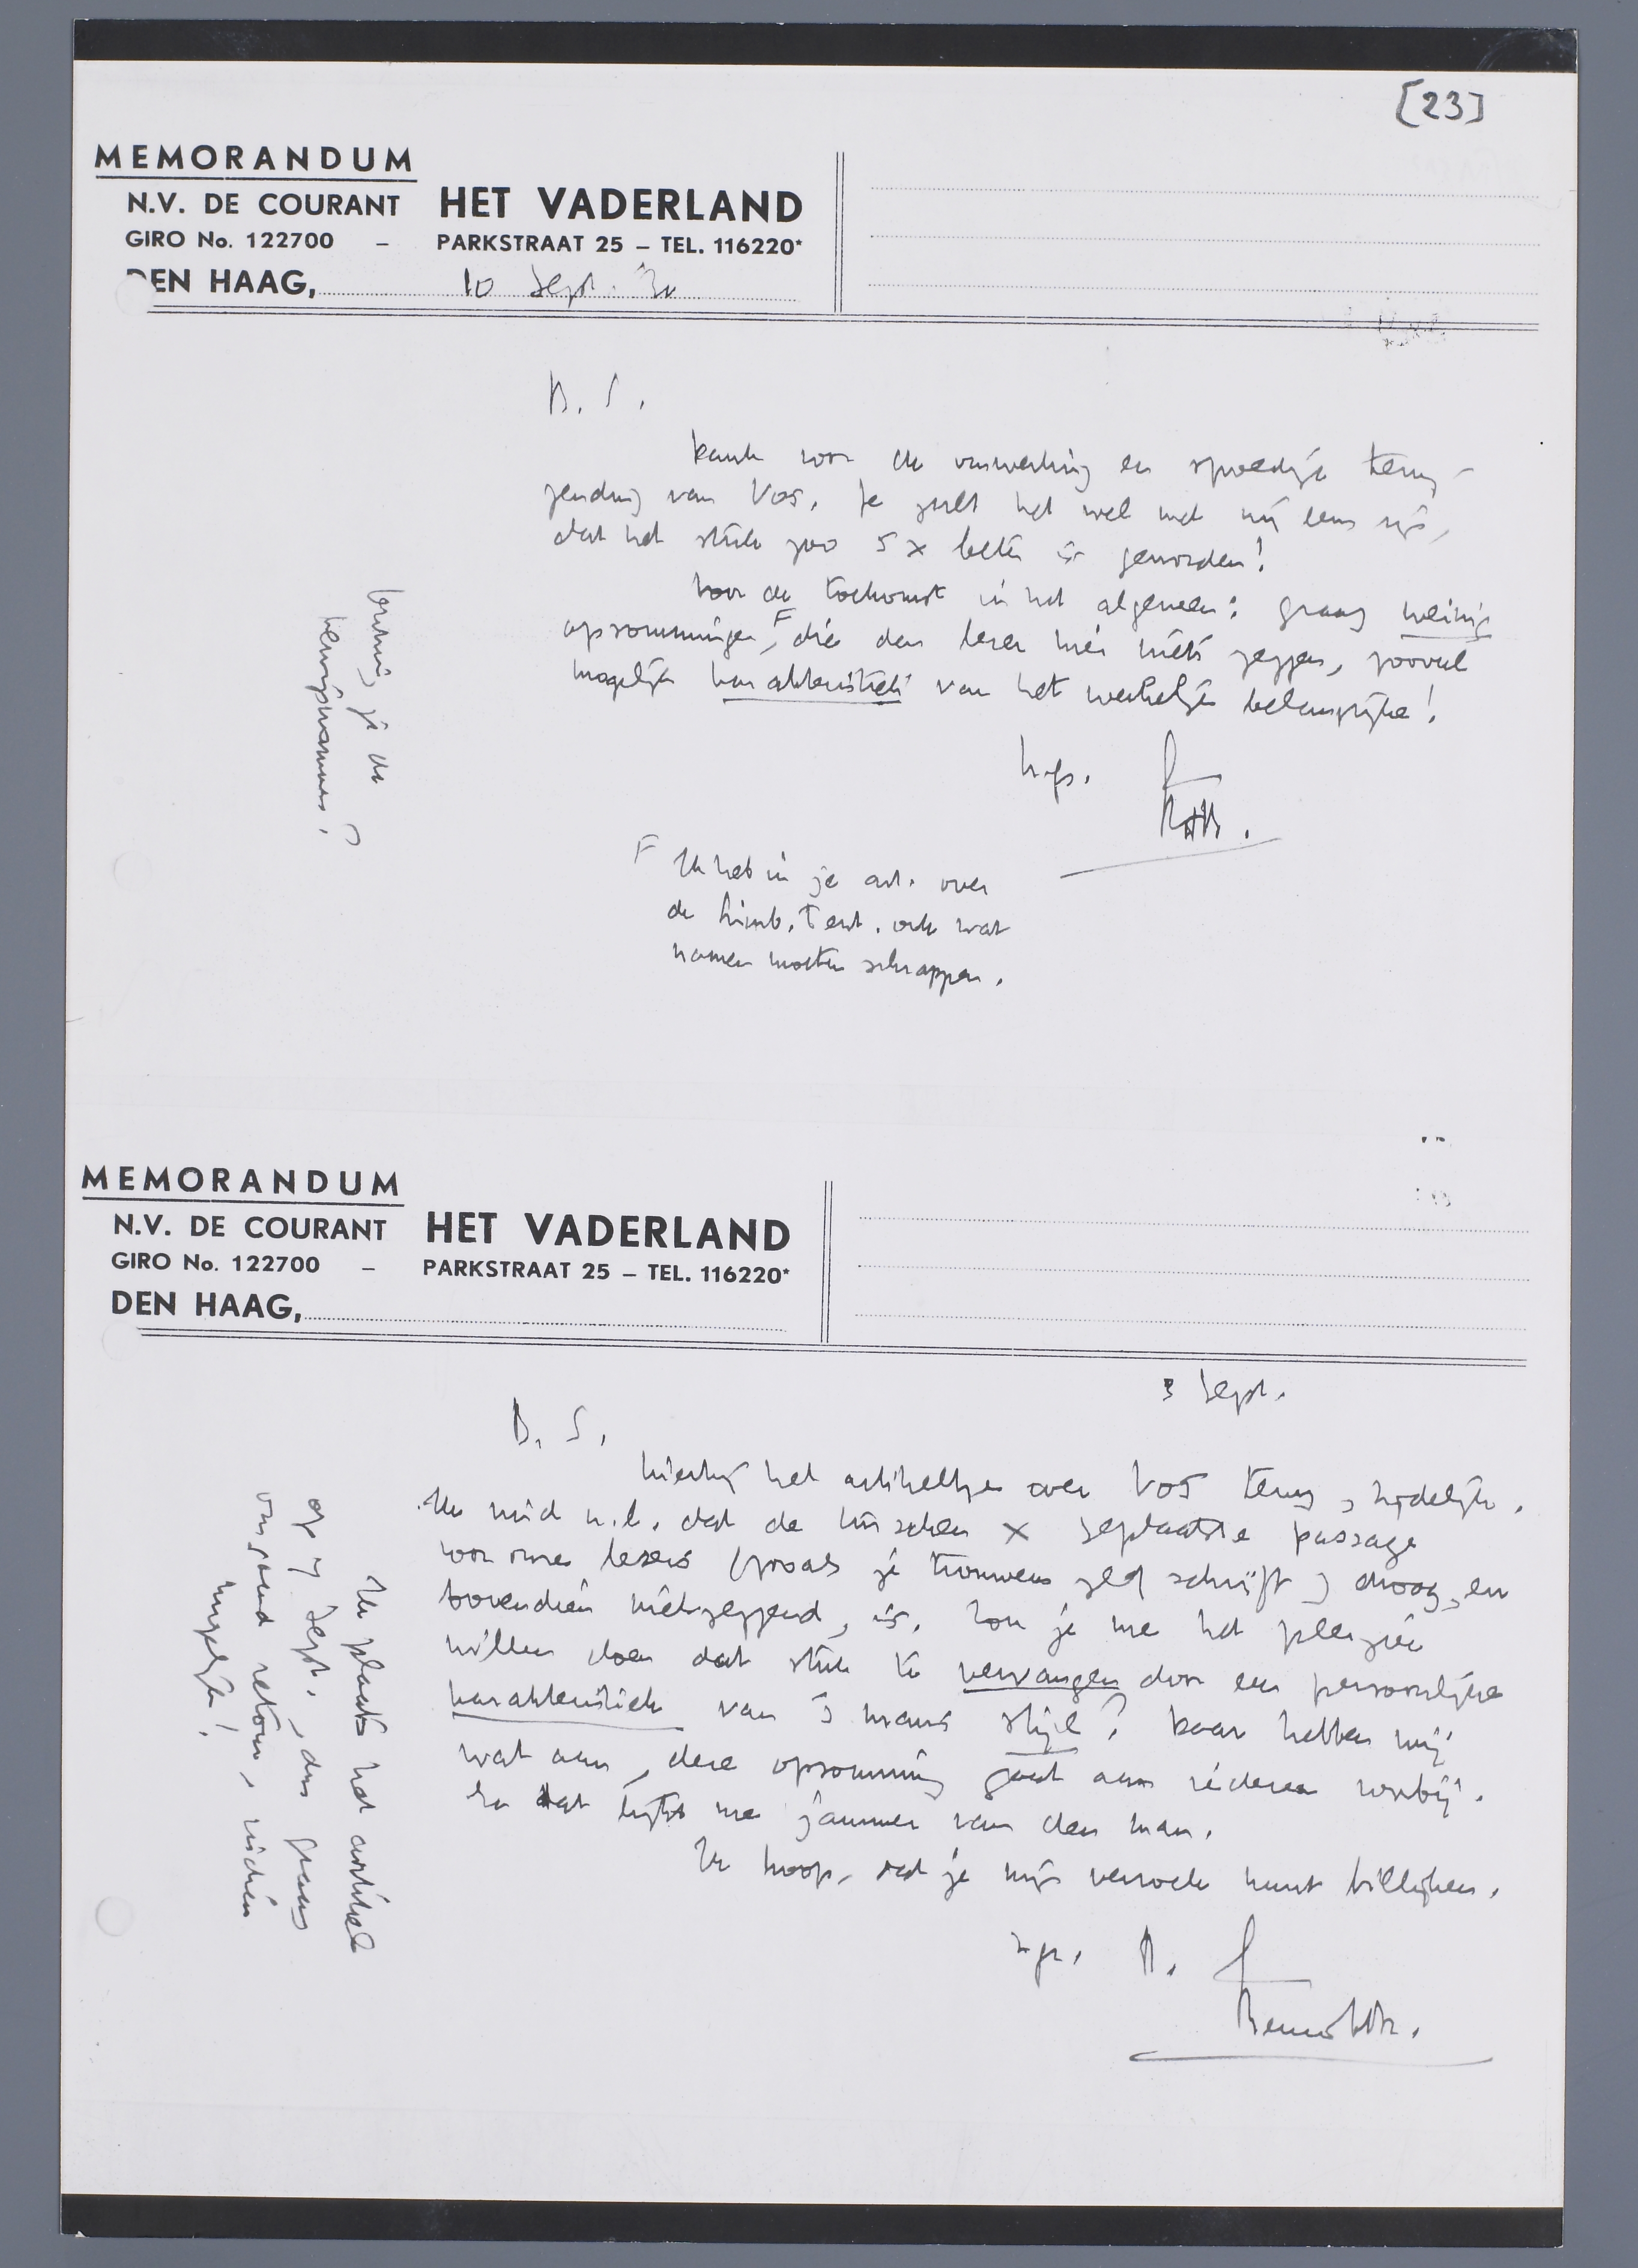 [23]
MEMORANDUM
N.V. DE COURANT HET VADERLAND
GIRO No. 122700 – PARKSTRAAT 25 – TEL. 116220*
DEN HAAG, 10 Sept.
B. S.
Dank voor de omwerking en spoedige terug-
zending van Vos. Je zult het wel met mij eens zijn,
dat het stuk zoo 5 x beter is geworden!
Voor de toekomst in het algemeen: graag weinig
opsommingen F, die den lezer hier niets zeggen, zooveel
mogelijk karakteristiek van het werkelijk belangrijke!
Ontving je de
bewijsnummers?
F Ik heb in je art. over
de Limb. Tent. ook wat
namen moeten schrappen.
MEMORANDUM
N.V. DE COURANT HET VADERLAND
GIRO No. 122700 – PARKSTRAAT 25 – TEL. 116220*
DEN HAAG,
3 Sept.
B. S.
hierbij het artikeltje over Vos terug, tijdelijk.
Ik vind n.l. dat de tusschen x geplaatste passage
voor onze lezers (zooals je trouwens zelf schrijft) droog, en
bovendien nietszeggend, is. Zou je me het plezier
willen doen dat stuk te vervangen door een persoonlijke
karakteristiek van 's mans stijl? Daar hebben wij
wat aan, deze opsomming gaat aan iedereen voorbij.
En dat lijkt me jammer van den man.
Ik hoop, dat je mijn verzoek kunt billijken.
Ik plaats het artikel
op 7 Sept., dus graag
omgaand retour, indien
mogelijk!